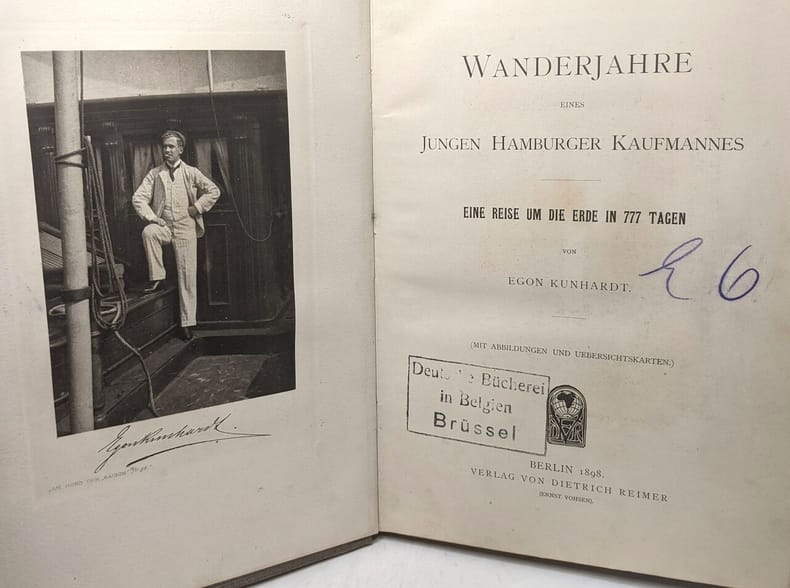 Egon Kunhardt.
WANDERJAHRE
EINES
JUNGEN HAMBURGER KAUFMANNES
EINE REISE UM DIE ERDE IN 777 TAGEN
VON
EGON KUNHARDT.
E 6
(MIT ABBILDUNGEN UND UEBERSICHTSKARTEN.)
Deutsche Bücherei
in Belgien
Brüssel
BERLIN 1898.
VERLAG VON DIETRICH REIMER
(ERNST VOHSEN).